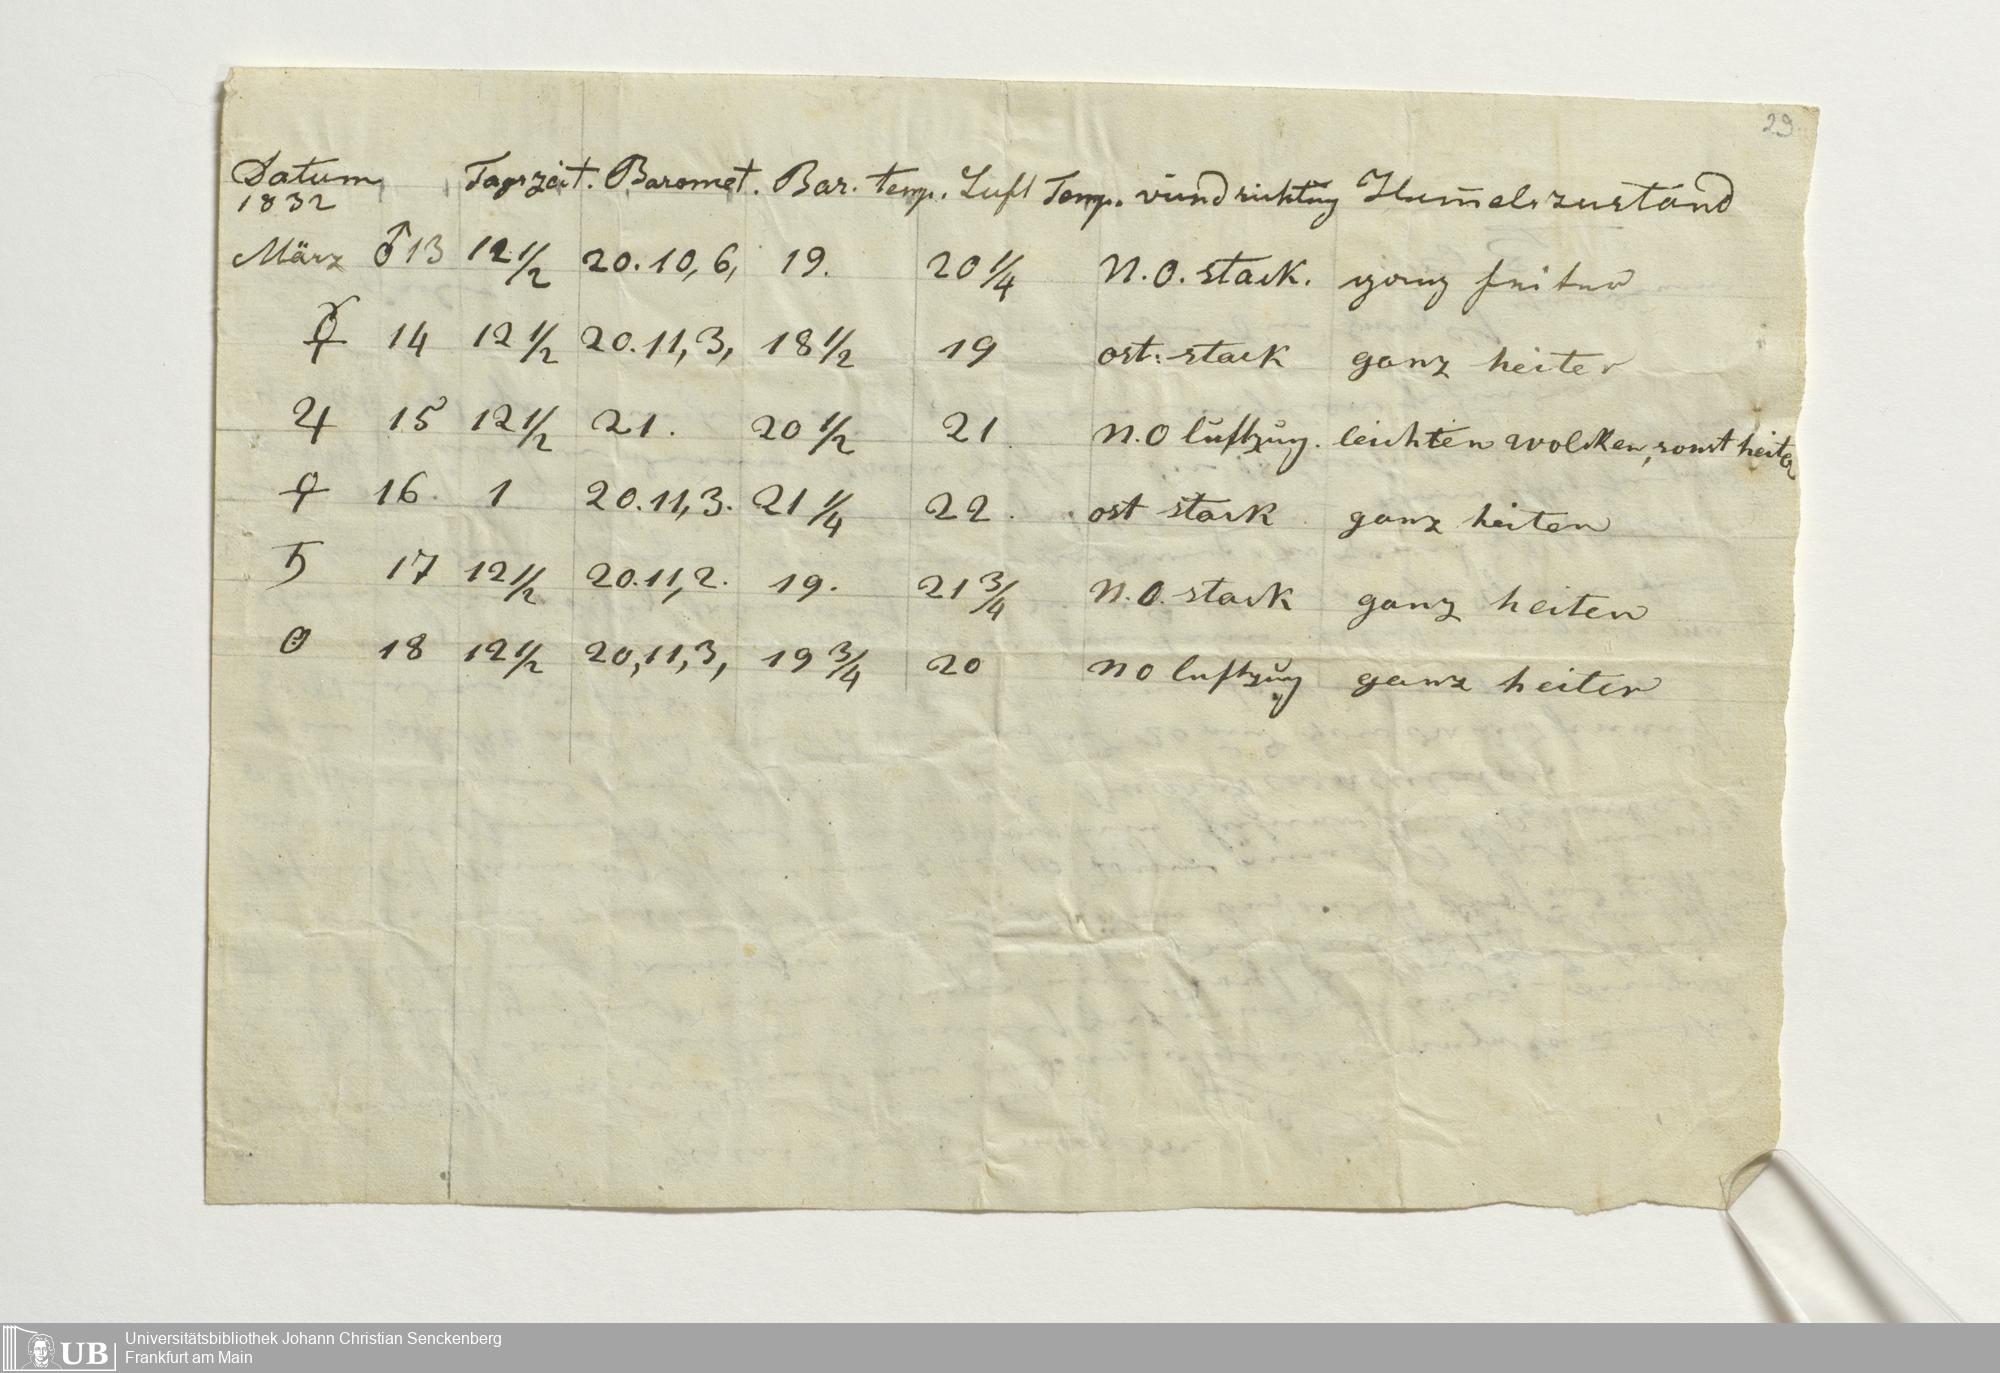 29
Datum Tagszeit. Baromet. Bar. temp. Luft Temp. windrichtug Him̄elszustand
1832
März ♂ 13 12 1/2 20.10,6, 19. 20 1/4 N.O. stark. ganz heiter
☿ 14 12 1/2 20.11,3, 18 1/2 19 ost. stark ganz heiter
♃ 15 12 1/2 21. 20 1/2 21. N.O luftzug. leichten wolken, sonst heiter
♀ 16. 1 20.11,3. 21 1/4 22. ost stark ganz heiter
♄ 17 12 1/2 20.11,2. 19. 21 3/4 N.O. stark ganz heiter
☉ 18 12 1/2 20,11,3, 19 3/4 20 NO luftzug ganz heiter
UB Universitätsbibliothek Johann Christian Senckenberg
Frankfurt am Main